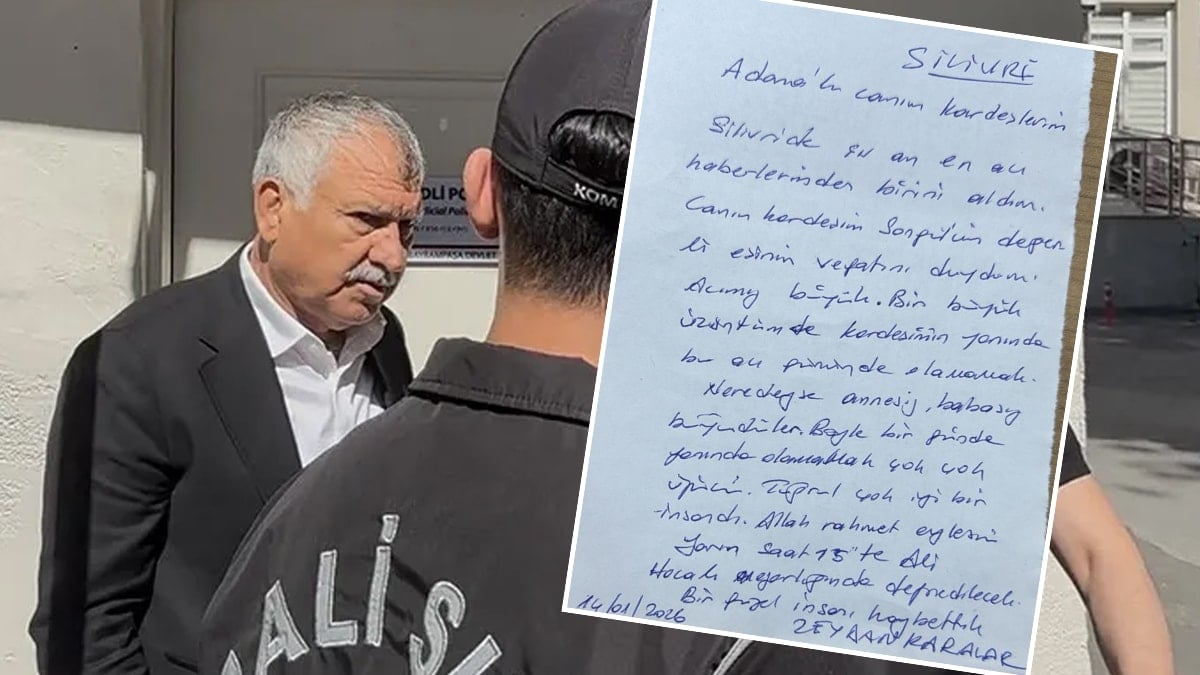 SİLİVRİ
Adana'lı canım kardeşlerim
Silivride şu an en acı
haberlerinden birini aldım.
Canım kardeşim Songül'ün değer
li eşinin vefatını duydum.
Acımız büyük. Bir büyük
üzüntüm de kardeşimin yanında
bu acı gününde olamamak.
Neredeyse annesiz, babasız
büyüdüler. Böyle bir günde
yanında olamamak çok çok
üzücü. çok iyi bir
insandı. Allah rahmet eylesin
Yarın saat 15'te Ali
Hocalı mezarlığında defnedilecek.
Bir güzel insanı kaybettik
14/01/2026
ZEYDAN KARALAR
KOM
DLİ PO
ficial Polic
BAYRAMPAŞA DEVLET
ALİS